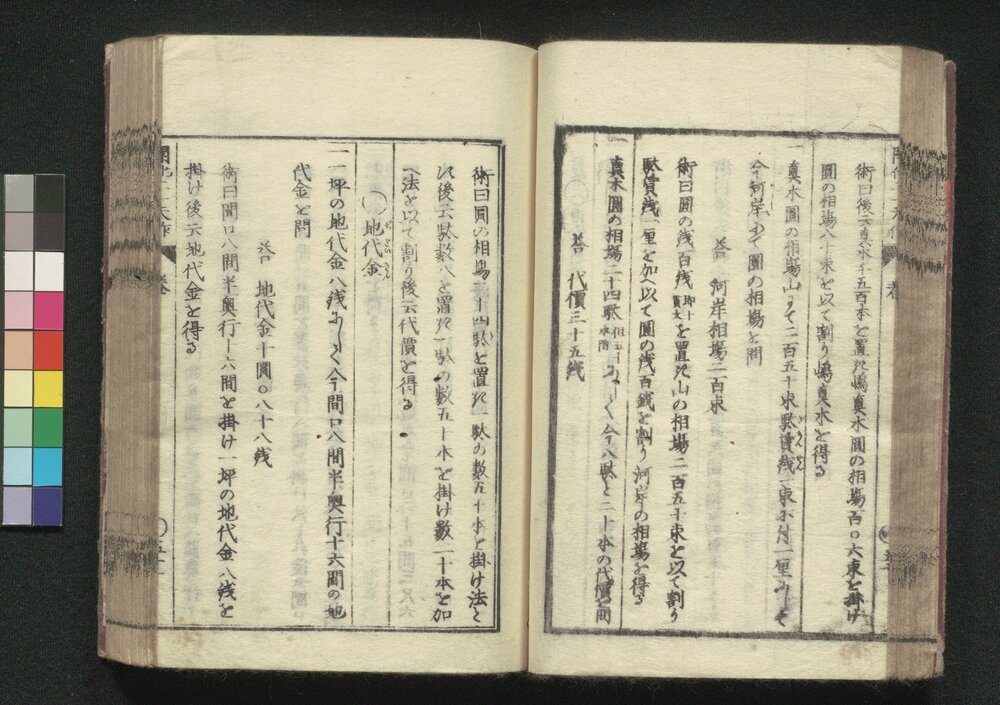 術曰後云真木千五百本を置此嶋真木圓の相場百〇六束を掛け
圓の相場八十束を以て割り嶋真木を得る
一真木圓の相場山にて二百五十束駄賃銭一束に付一厘にして
今河岸にて圓の相場を問
答 河岸相場二百束
術曰圓の銭百銭を置此山の相場二百五十束を以て割り
駄賃銭一厘を加へ以て圓の銭百銭を割り河岸の相場を得る
一真木圓の相場二十四駄にして今八駄と二十本の代價を問
答 代價三十五銭
術曰圓の相場二十四駄を置此一駄の数五十本を掛け法と
し後云駄数八を置此一駄の数五十本を掛け数二十本を加
へ法を以て割り後云代價を得る
〇地代金
一一坪の地代金八銭にして今間口八間半奥行十六間の地
代金を問
答 地代金十圓〇八十八銭
術曰間口八間半奥行十六間を掛け一坪の地代金八銭を
掛け後云地代金を得る